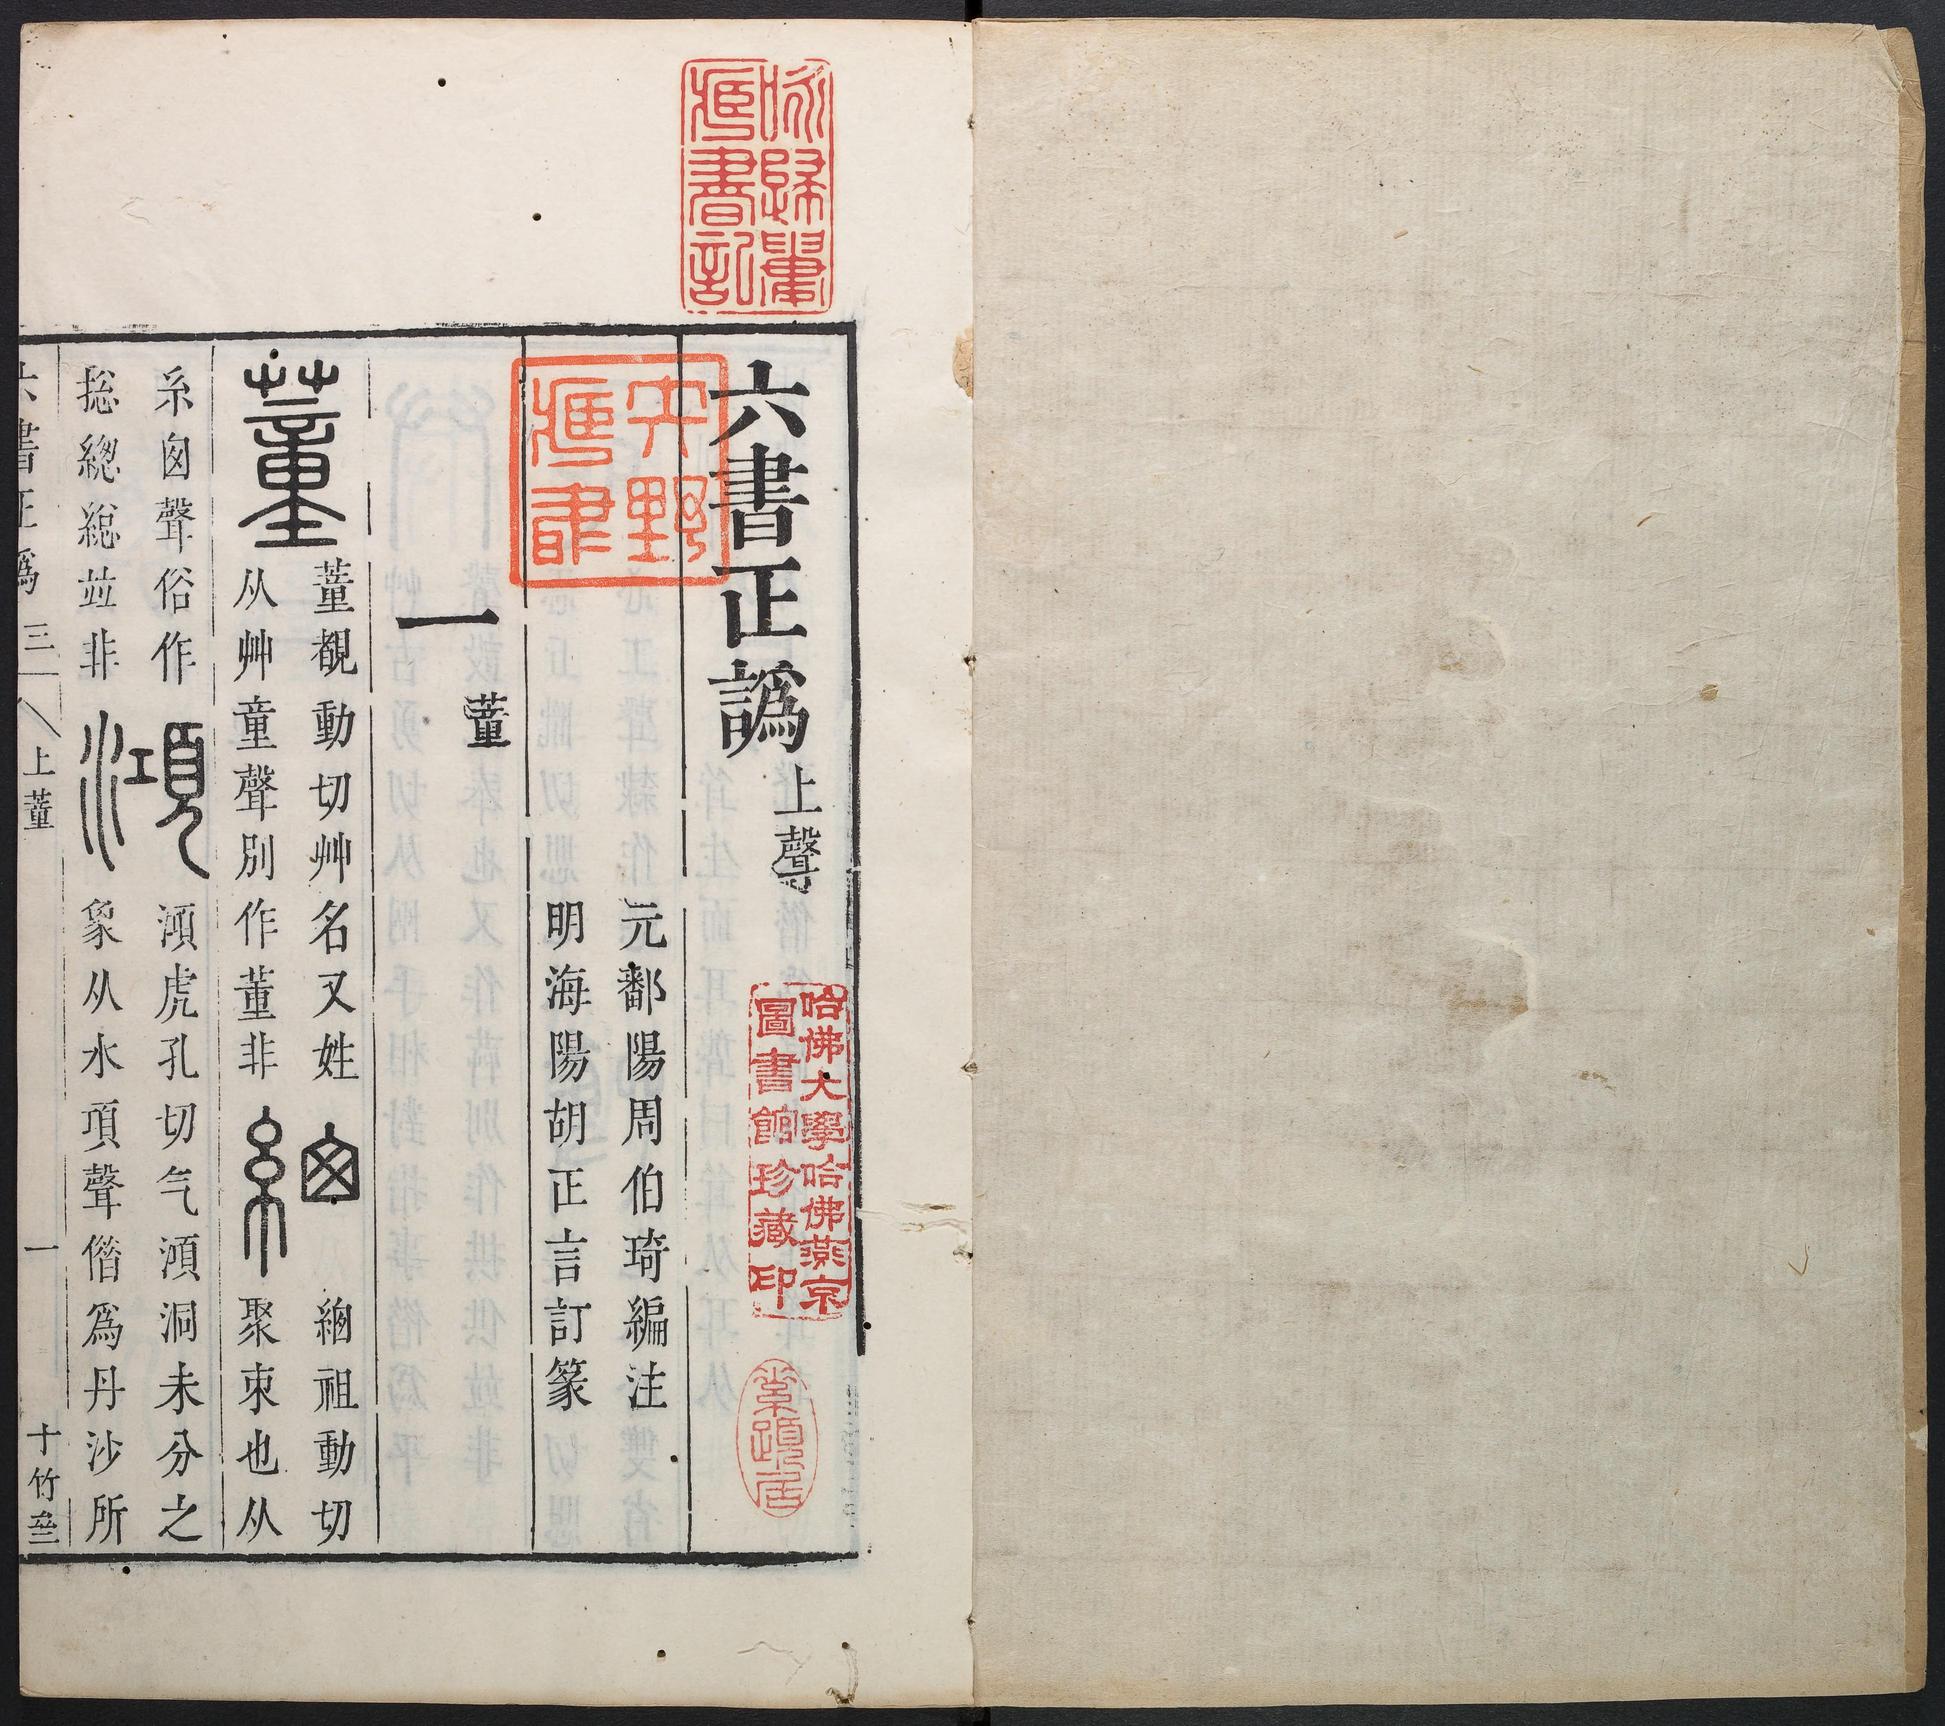 六書正譌上聲
元鄱陽周伯琦編注
明海陽胡正言訂篆
一蕫
蕫 蕫覩動切艸名又姓
从艸童聲別作董非
緫 緫祖動切
聚束也从
糸囪聲俗作
捴總縂並非
澒 澒虎孔切气澒洞未分之
象从水項聲偺爲丹沙所
六書正譌 三 上蕫 一 十竹
詠歸圃
藏書記
大野
藏書
哈佛大學哈佛燕京
圖書館珍藏印